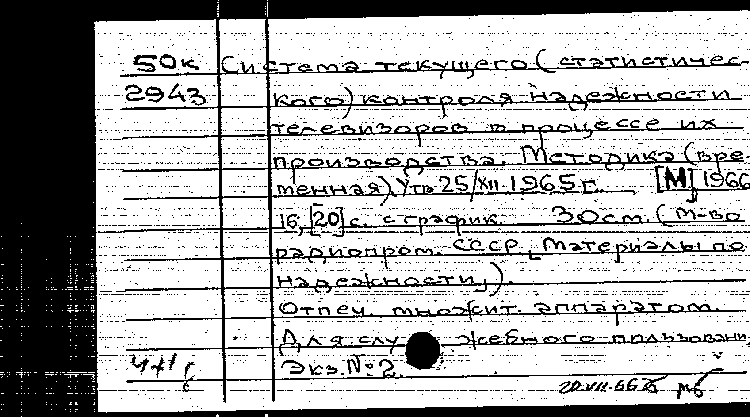 50к Система текущего (статистичес-
2943 кого) контроля надежности
телевизоров в процессе их
производства. Методика (вре-
менная). Утв 25/XII 1965 г. [М], 1966
16, [20] с. с график. 30 см. (М-во
радиопром. СССР. Материалы по
надежности).
Отпеч. множит. аппаратом.
Для служебного пользовани
Экз. № 2.
20.VII.66